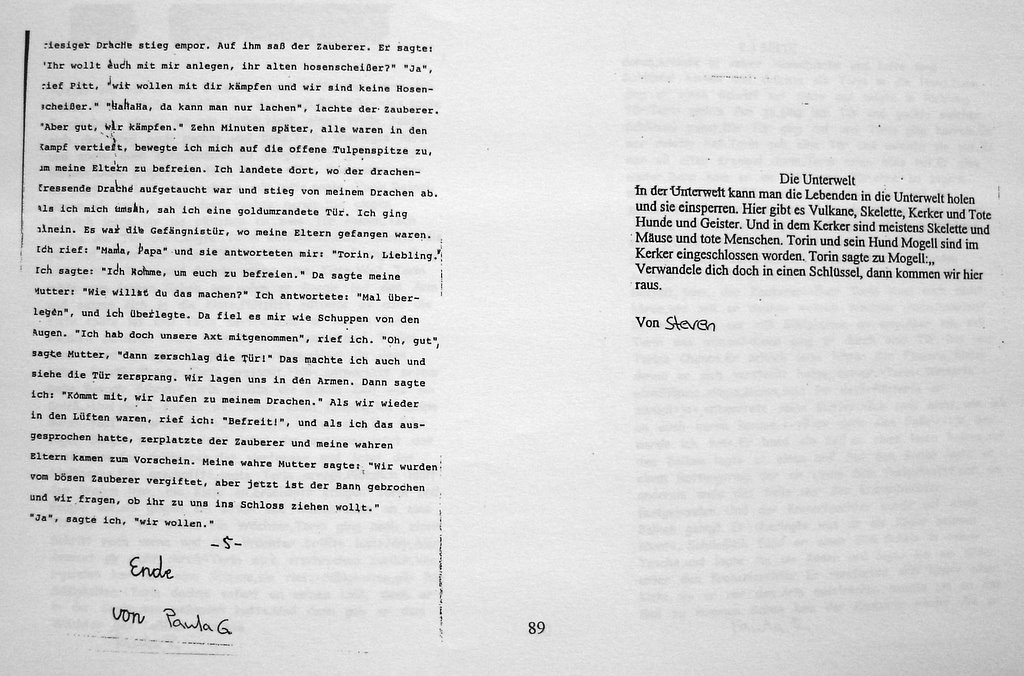 riesiger Drache stieg empor. Auf ihm saß der Zauberer. Er sagte:
"Ihr wollt euch mit mir anlegen, ihr alten hosenscheißer?" "Ja",
rief Pitt, "wir wollen mit dir kämpfen und wir sind keine Hosen-
scheißer." "HaHaHa, da kann man nur lachen", lachte der Zauberer.
"Aber gut, wir kämpfen." Zehn Minuten später, alle waren in den
Kampf vertieft, bewegte ich mich auf die offene Tulpenspitze zu,
um meine Eltern zu befreien. Ich landete dort, wo der drachen-
fressende Drache aufgetaucht war und stieg von meinem Drachen ab.
Als ich mich umsah, sah ich eine goldumrandete Tür. Ich ging
hinein. Es war die Gefängnistür, wo meine Eltern gefangen waren.
Ich rief: "Mama, Papa" und sie antworteten mir: "Torin, Liebling."
Ich sagte: "Ich komme, um euch zu befreien." Da sagte meine
Mutter: "Wie willst du das machen?" Ich antwortete: "Mal über-
legen", und ich überlegte. Da fiel es mir wie Schuppen von den
Augen. "Ich hab doch unsere Axt mitgenommen", rief ich. "Oh, gut",
sagte Mutter, "dann zerschlag die Tür!" Das machte ich auch und
siehe die Tür zersprang. Wir lagen uns in den Armen. Dann sagte
ich: "Kommt mit, wir laufen zu meinem Drachen." Als wir wieder
in den Lüften waren, rief ich: "Befreit!", und als ich das aus-
gesprochen hatte, zerplatzte der Zauberer und meine wahren
Eltern kamen zum Vorschein. Meine wahre Mutter sagte: "Wir wurden
vom bösen Zauberer vergiftet, aber jetzt ist der Bann gebrochen
und wir fragen, ob ihr zu uns ins Schloss ziehen wollt."
"Ja", sagte ich, "wir wollen."
-5-
Ende
von Paula G.
Die Unterwelt
In der Unterwelt kann man die Lebenden in die Unterwelt holen
und sie einsperren. Hier gibt es Vulkane, Skelette, Kerker und Tote
Hunde und Geister. Und in dem Kerker sind meistens Skelette und
Mäuse und tote Menschen. Torin und sein Hund Mogell sind im
Kerker eingeschlossen worden. Torin sagte zu Mogell:„
Verwandele dich doch in einen Schlüssel, dann kommen wir hier
raus.
Von Steven
89